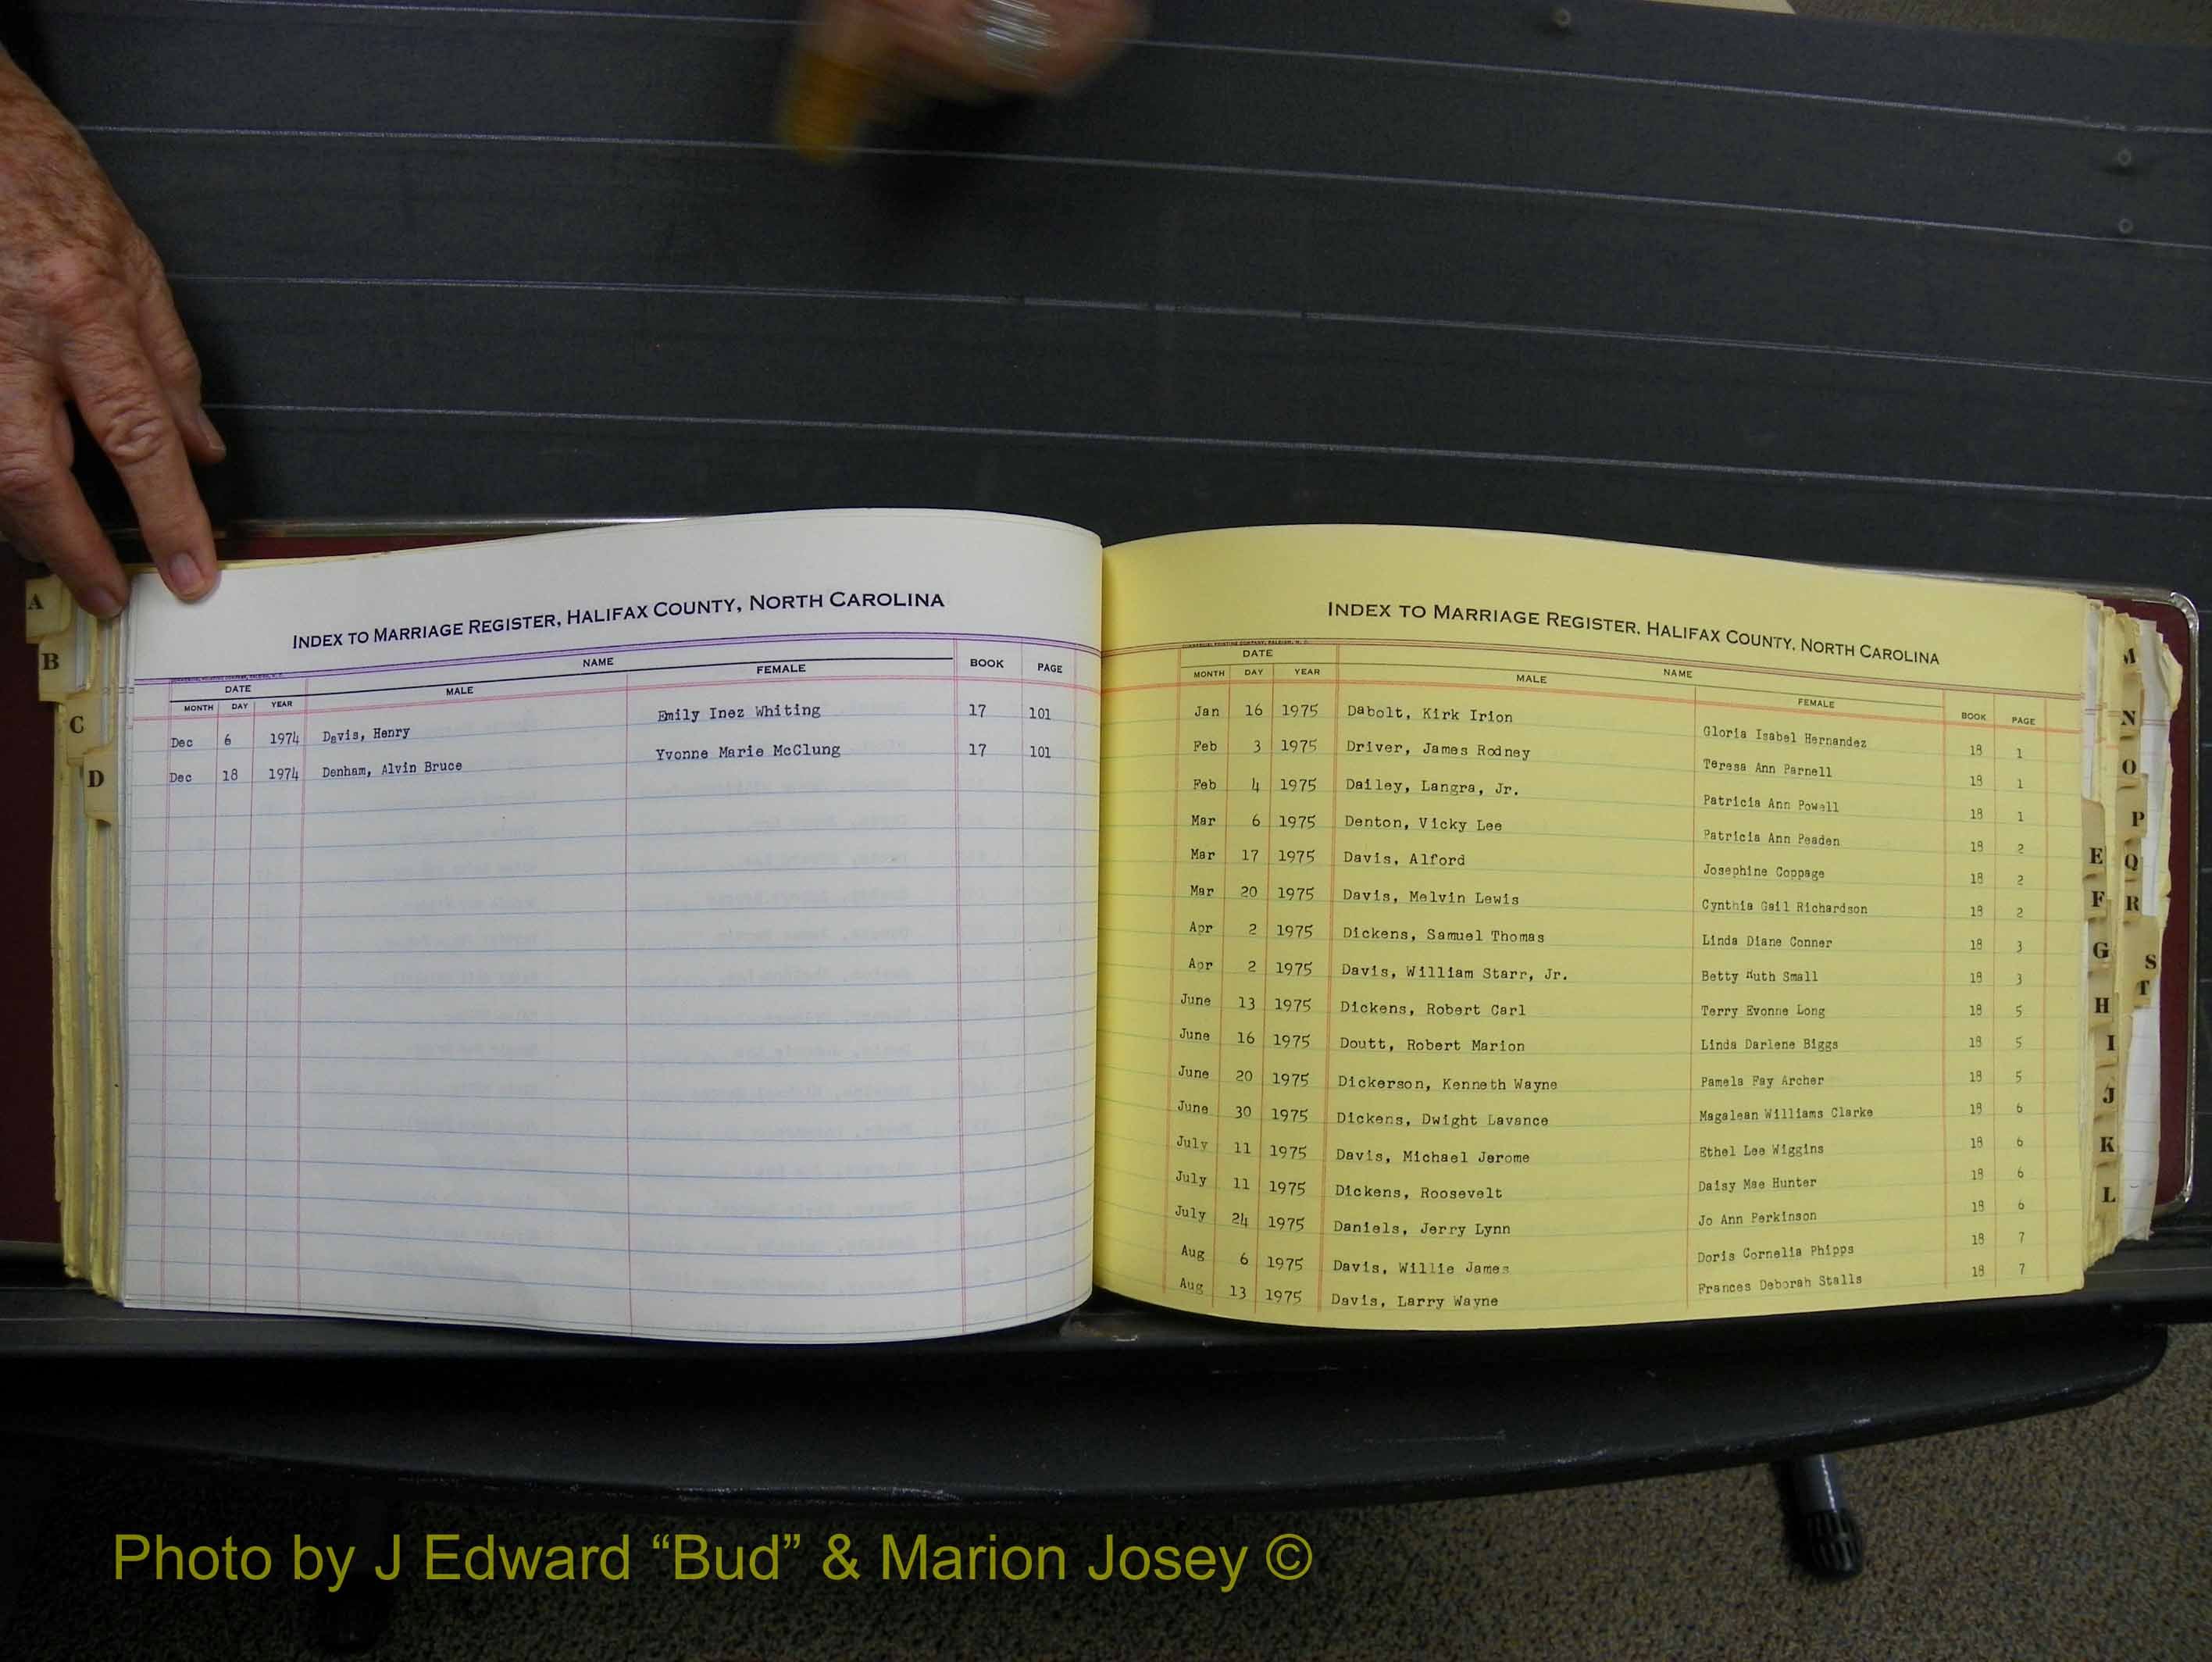 A
B
C
D
INDEX TO MARRIAGE REGISTER, HALIFAX COUNTY, NORTH CAROLINA
DATE NAME
MONTH DAY YEAR MALE FEMALE BOOK PAGE
Dec 6 1974 Davis, Henry Emily Inez Whiting 17 101
Dec 18 1974 Denham, Alvin Bruce Yvonne Marie McClung 17 101
INDEX TO MARRIAGE REGISTER, HALIFAX COUNTY, NORTH CAROLINA
DATE NAME
MONTH DAY YEAR MALE FEMALE BOOK PAGE
Jan 16 1975 Dabolt, Kirk Irion Gloria Isabel Hernandez 18 1
Feb 3 1975 Driver, James Rodney Teresa Ann Parnell 18 1
Feb 4 1975 Dailey, Langra, Jr. Patricia Ann Powell 18 1
Mar 6 1975 Denton, Vicky Lee Patricia Ann Peaden 18 2
Mar 17 1975 Davis, Alford Josephine Coppage 18 2
Mar 20 1975 Davis, Melvin Lewis Cynthia Gail Richardson 18 2
Apr 2 1975 Dickens, Samuel Thomas Linda Diane Conner 18 3
Apr 2 1975 Davis, William Starr, Jr. Betty Ruth Small 18 3
June 13 1975 Dickens, Robert Carl Terry Evonne Long 18 5
June 16 1975 Doutt, Robert Marion Linda Darlene Biggs 18 5
June 20 1975 Dickerson, Kenneth Wayne Pamela Fay Archer 18 5
June 30 1975 Dickens, Dwight Lavance Magalean Williams Clarke 18 6
July 11 1975 Davis, Michael Jerome Ethel Lee Wiggins 18 6
July 11 1975 Dickens, Roosevelt Daisy Mae Hunter 18 6
July 24 1975 Daniels, Jerry Lynn Jo Ann Perkinson 18 6
Aug 6 1975 Davis, Willie James Doris Cornelia Phipps 18 7
Aug 13 1975 Davis, Larry Wayne Frances Deborah Stalls 18 7
E
F
G
H
I
J
K
L
M
N
O
P
Q
R
S
T
Photo by J Edward “Bud” & Marion Josey ©